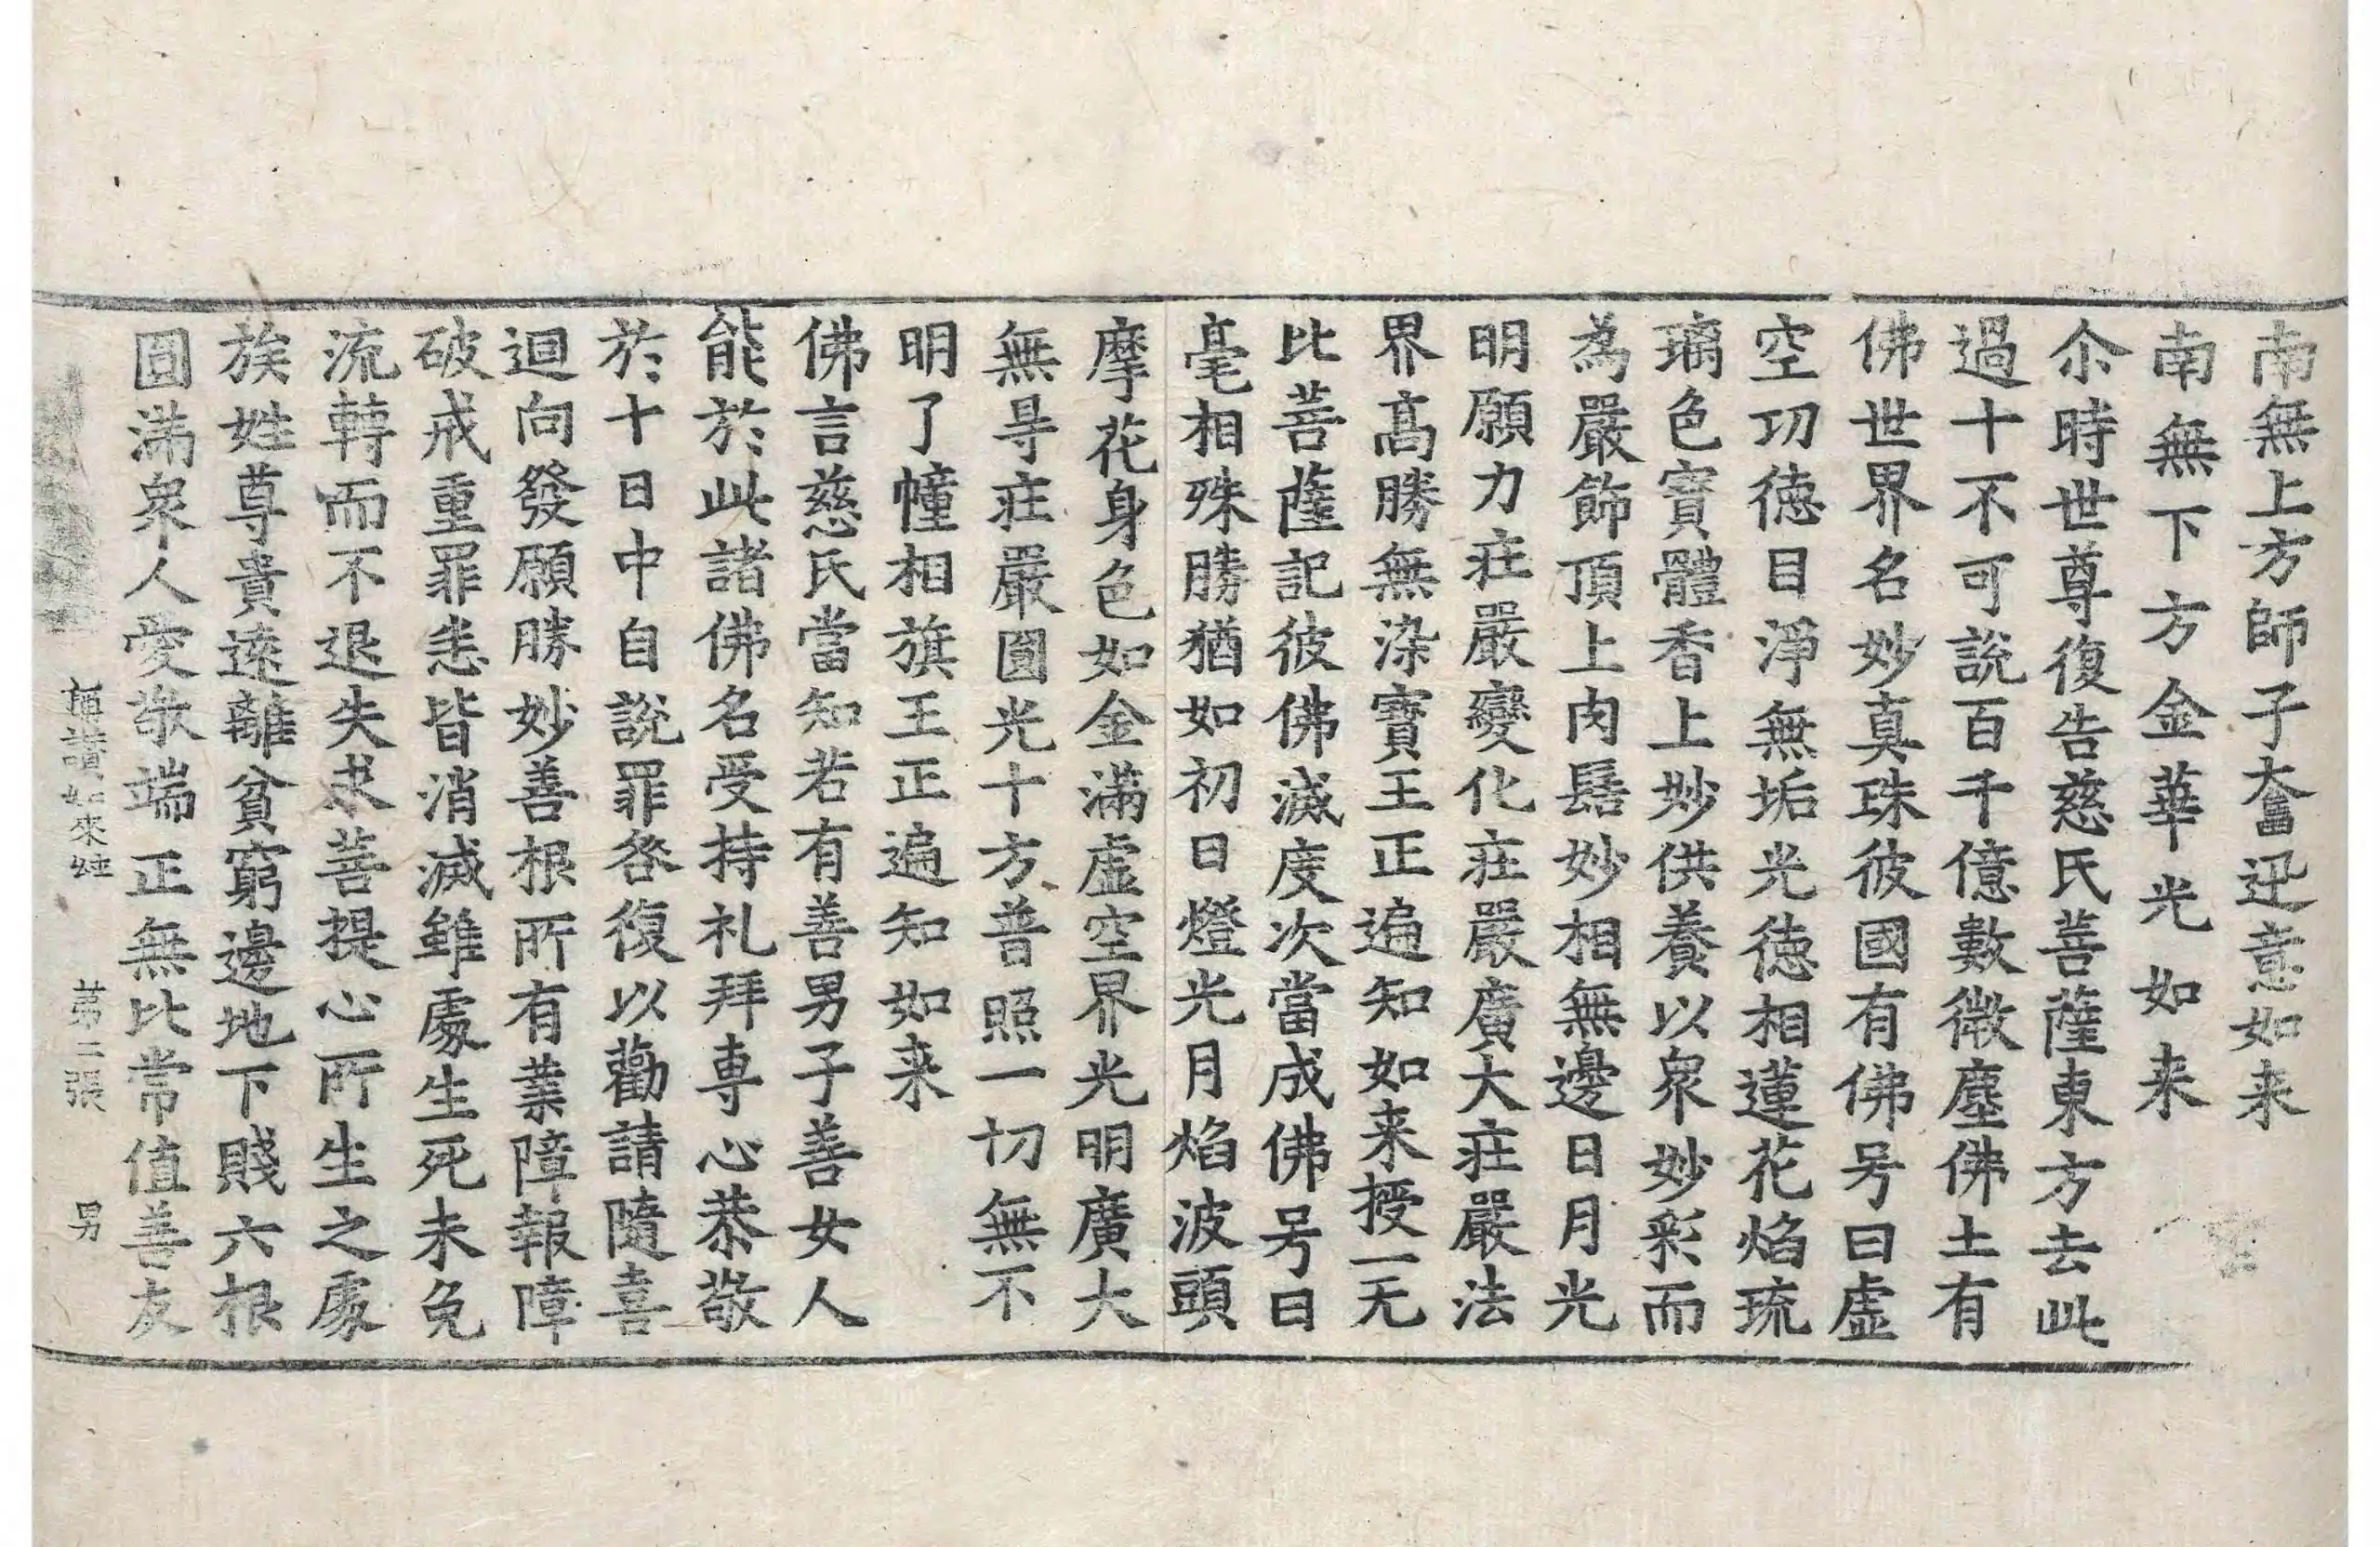 南無上方師子奮迅意如来
南無下方金華光如来
尒時世尊復告慈氏菩薩東方去此
過十不可說百千億數微塵佛土有
佛世界名妙真珠彼國有佛号曰虛
空功徳目淨無垢光徳相蓮花焰琉
璃色寳體香上妙供養以衆妙彩而
為嚴飾頂上肉髻妙相無邊日月光
明願力莊嚴變化莊嚴廣大莊嚴法
界髙勝無染寳王正遍知如来授一无
比菩薩記彼佛滅度次當成佛号曰
毫相殊勝猶如初日燈光月焰波頭
摩花身色如金滿虛空界光明廣大
無㝵莊嚴圎光十方普照一切無不
明了幢相旗王正遍知如来
佛言慈氏當知若有善男子善女人
能於此諸佛名受持礼拜専心恭敬
於十日中自說罪咎復以勸請隨喜
迴向發願勝妙善根所有業障報障
破戒重罪恚皆消滅雖處生死未免
流轉而不退失求菩提心所生之處
族姓尊貴逺離貧窮邊地下賤六根
圎滿衆人愛敬端正無比常值善友
稱讃如來經　第二張　男